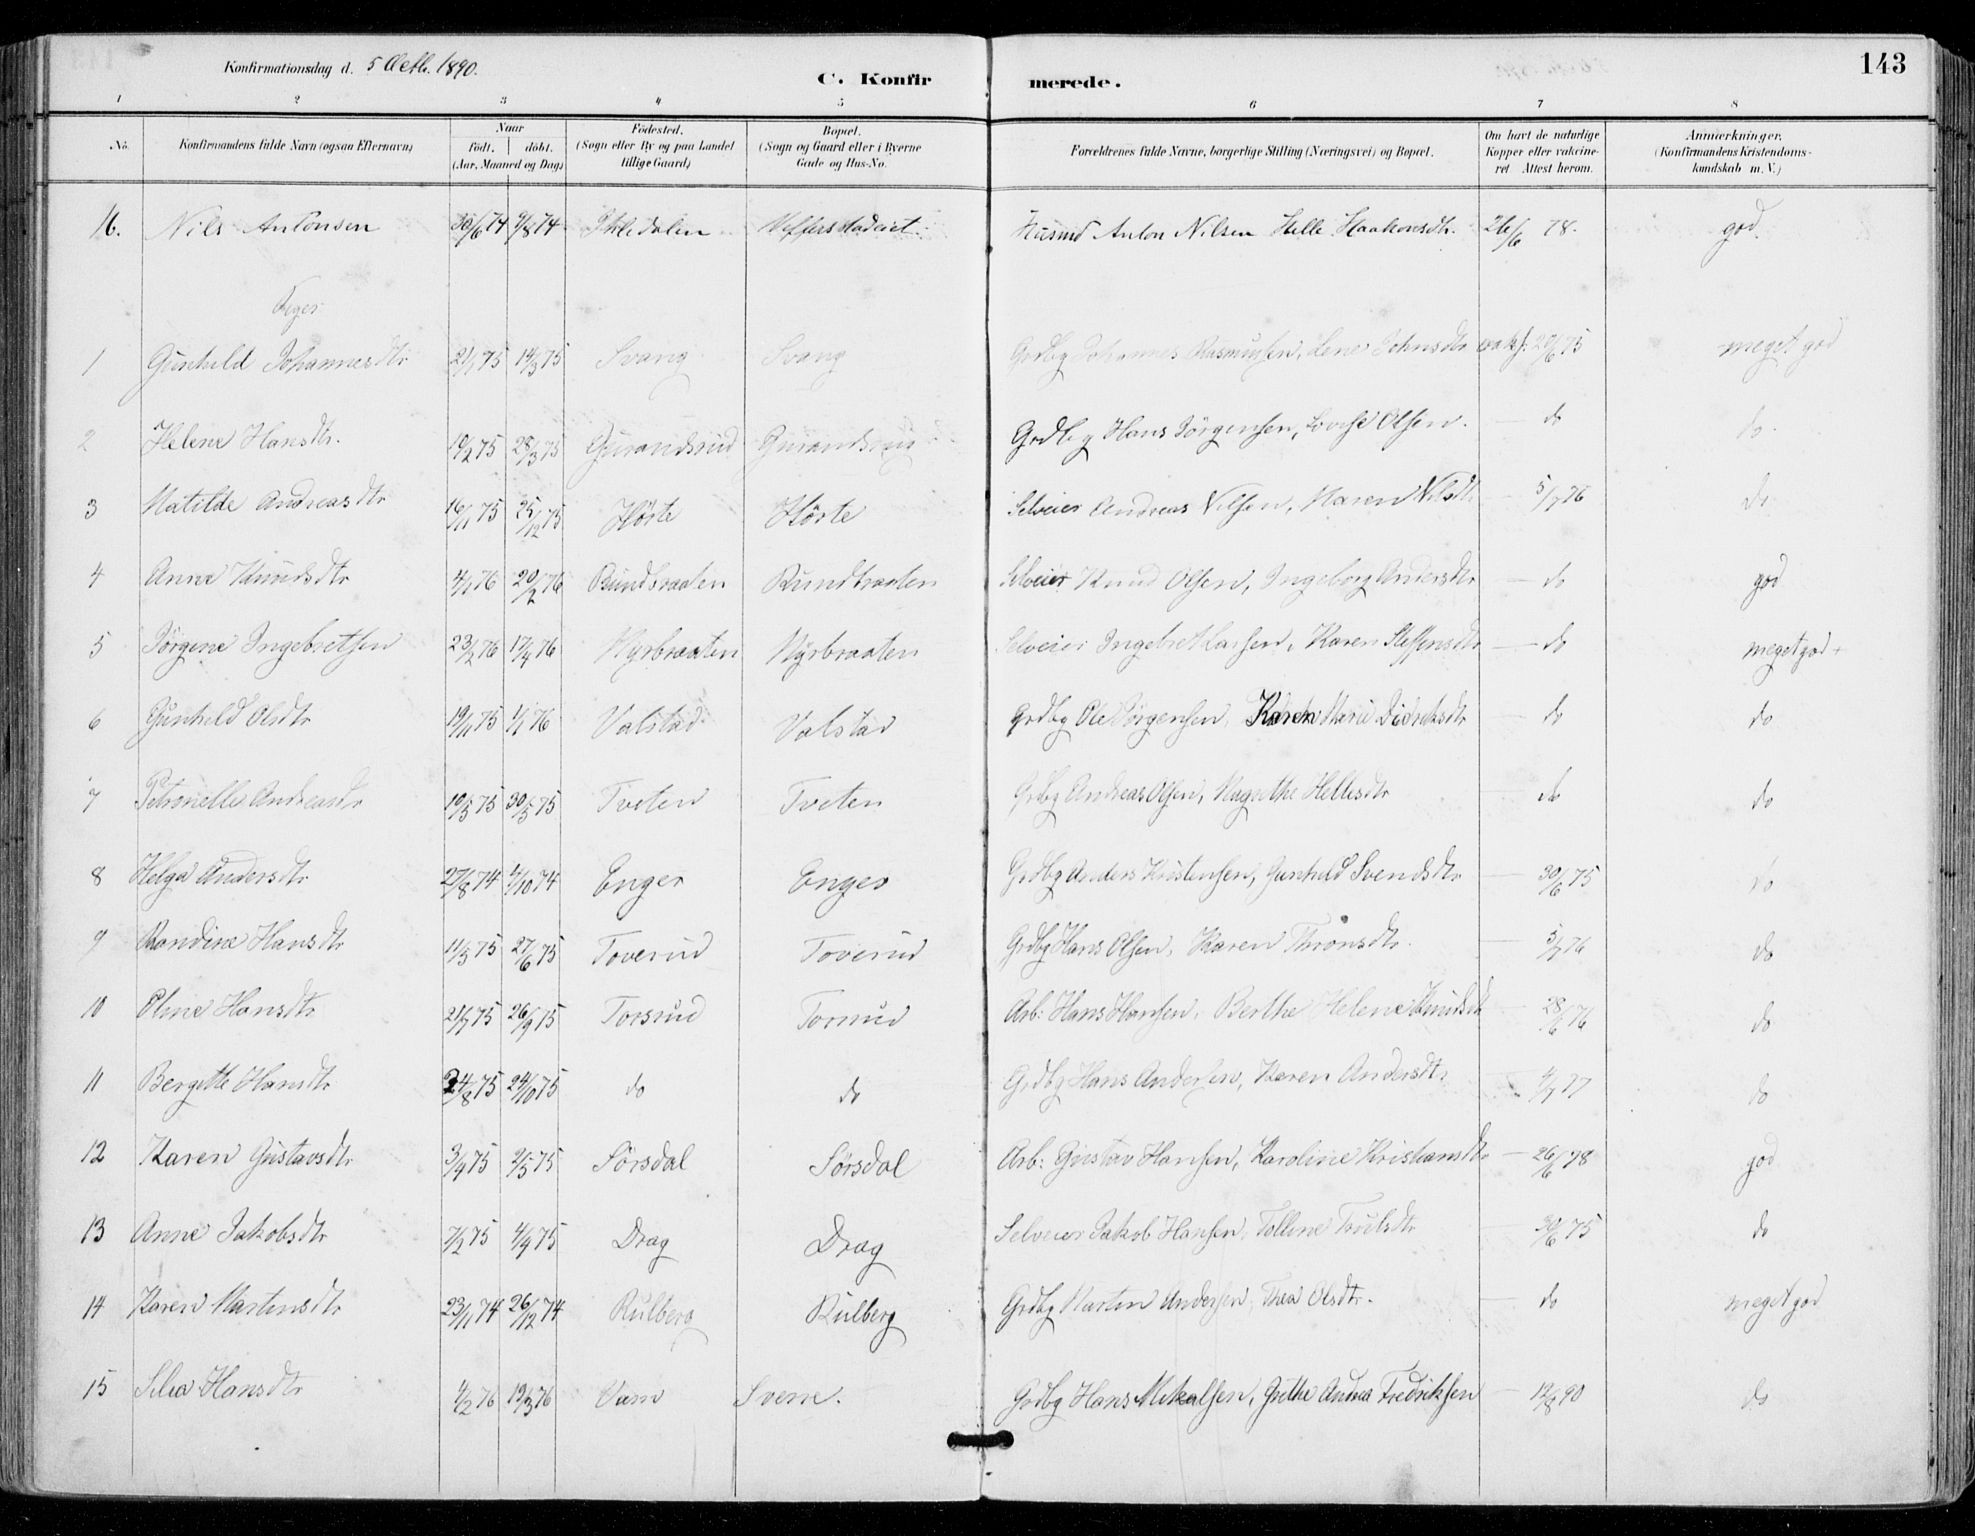 Konfirmationsdag d. 5 Octb. 1890.
C. Konfirmerede.
143
1 2 3 4 5 6 7 8
No. Konfirmandens fulde Navn (ogsaa Efternavn) Naar født. døbt. (Aar, Maaned og Dag) Fødested. (Sogn eller By og paa Landet tillige Gaard) Bopæl. (Sogn og Gaard eller i Byerne Gade og Hus-No. Forældrenes fulde Navne, borgerlige Stilling (Næringsvei) og Bopæl. Om havt de naturlige Kopper eller vakcineret Attest herom. Anmærkninger. (Konfirmandens Kristendomskundskab m. V.)
16. Nils Antonsen 30/6 74 9/8 74 Anton Nilsen Helle Haakonsdtr. 26/6 78. god
Piger
1 Gunhild Johannesdtr 21/1 75 14/3 75 Svang Svang Grdbg Johannes Rasmussen, Lene Johnsdtr vaks. 20/6 75 meget god
2 Helene Hansdtr. 10/2 75 28/3 75 Gurandsrud Gurandsrud Grdbg Hans Jørgensen, Lovise Olsen. — do do.
3 Matilde Andreasdtr 16/11 75 25/12 75 Hörte Hörte Selveier Andreas Nilsen, Maren Nilsdtr — 5/7 76 do
4 Anne Knudsdtr 4/1 76 20/2 76 Rundbraaten Rundbraaten Selveier Knud Olsen, Ingeborg Andersdtr — do god
5 Jørgine Ingebretsen 23/2 76 17/4 76 Myrbraaten Myrbraaten Selveier Ingebret Larsen, Karen Steffensdtr — do meget god +
6 Gunhild Olsdtr 19/11 75 1/1 76 Valstad Valstad Grdbg Ole Jørgensen, Karen Marie Didriksdtr — do do
7 Petronelle Andreasdtr 10/3 75 30/5 75 Tveten Tveten Grdbg Andreas Olsen, Magrethe Hellesdtr — do do
8 Helga Andersdtr 27/8 74 4/10 74 Enger Enger Grdbg Anders Kristensen, Gunhild Svendsdtr — 30/6 75 do
9 Randine Hansdtr 11/3 75 27/6 75 Toverud Toverud Grdbg Hans Olsen, Karen Thronsdtr. 5/7 76 do
10 Oline Hansdtr 21/7 75 26/9 75 Torsrud Torsrud Arb: Hans Hansen, Berthe Helene Knudsdtr — 28/6 76 do
11 Bergitte Hansdtr 24/8 75 24/10 75 do do Grdbg Hans Andersen, Karen Andersdtr — 4/7 77 do
12 Karen Gustavsdtr 3/4 75 9/5 75 Sörsdal Sörsdal Arb: Gustav Hansen, Karoline Kristiansdtr — 26/6 78 god
13 Anne Jakobsdtr 7/2 75 4/4 75 Drag Drag Selveier Jakob Hansen, Tolline Trulsdtr — 30/6 75 do
14 Karen Martinsdtr 23/11 74 26/12 74 Rulberg Rulberg Grdbg Martin Andersen, Thea Olsdtr. — do meget god
15 Hansdtr 4/2 76 19/3 76 Grdbg Hans Mikalsen, Grethe Andrea Fredriksen — 12/8 90 do